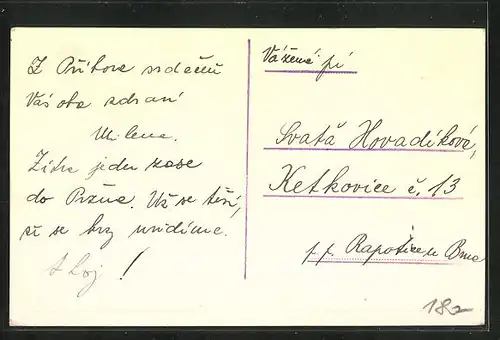 Z Příbora srdečně
Vás oba zdraví
Milena.
Zítra jedu zase
do Brna. Už se těší,
až se brzy uvidíme.
Ahoj!
Vážená pí
Svatá Hovadíková,
Ketkovice č. 13
p.p. Rapotice u Brna
180